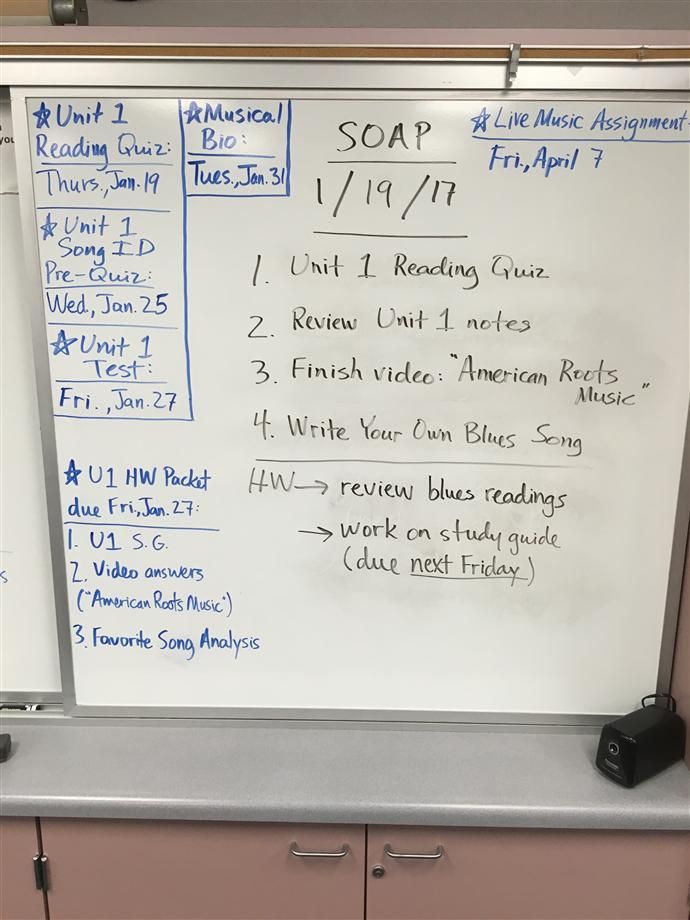 ☆ Unit 1
Reading Quiz:
Thurs., Jan. 19
☆ Unit 1
Song ID
Pre-Quiz:
Wed., Jan. 25
☆ Unit 1
Test:
Fri., Jan. 27
☆ Musical
Bio:
Tues., Jan. 31
☆ Live Music Assignment
Fri., April 7
SOAP
1/19/17
1. Unit 1 Reading Quiz
2. Review Unit 1 notes
3. Finish video: "American Roots
Music"
4. Write Your Own Blues Song
HW → review blues readings
→ work on study guide
(due next Friday)
☆ U1 HW Packet
due Fri., Jan. 27:
1. U1 S.G.
2. Video answers
("American Roots Music")
3. Favorite Song Analysis